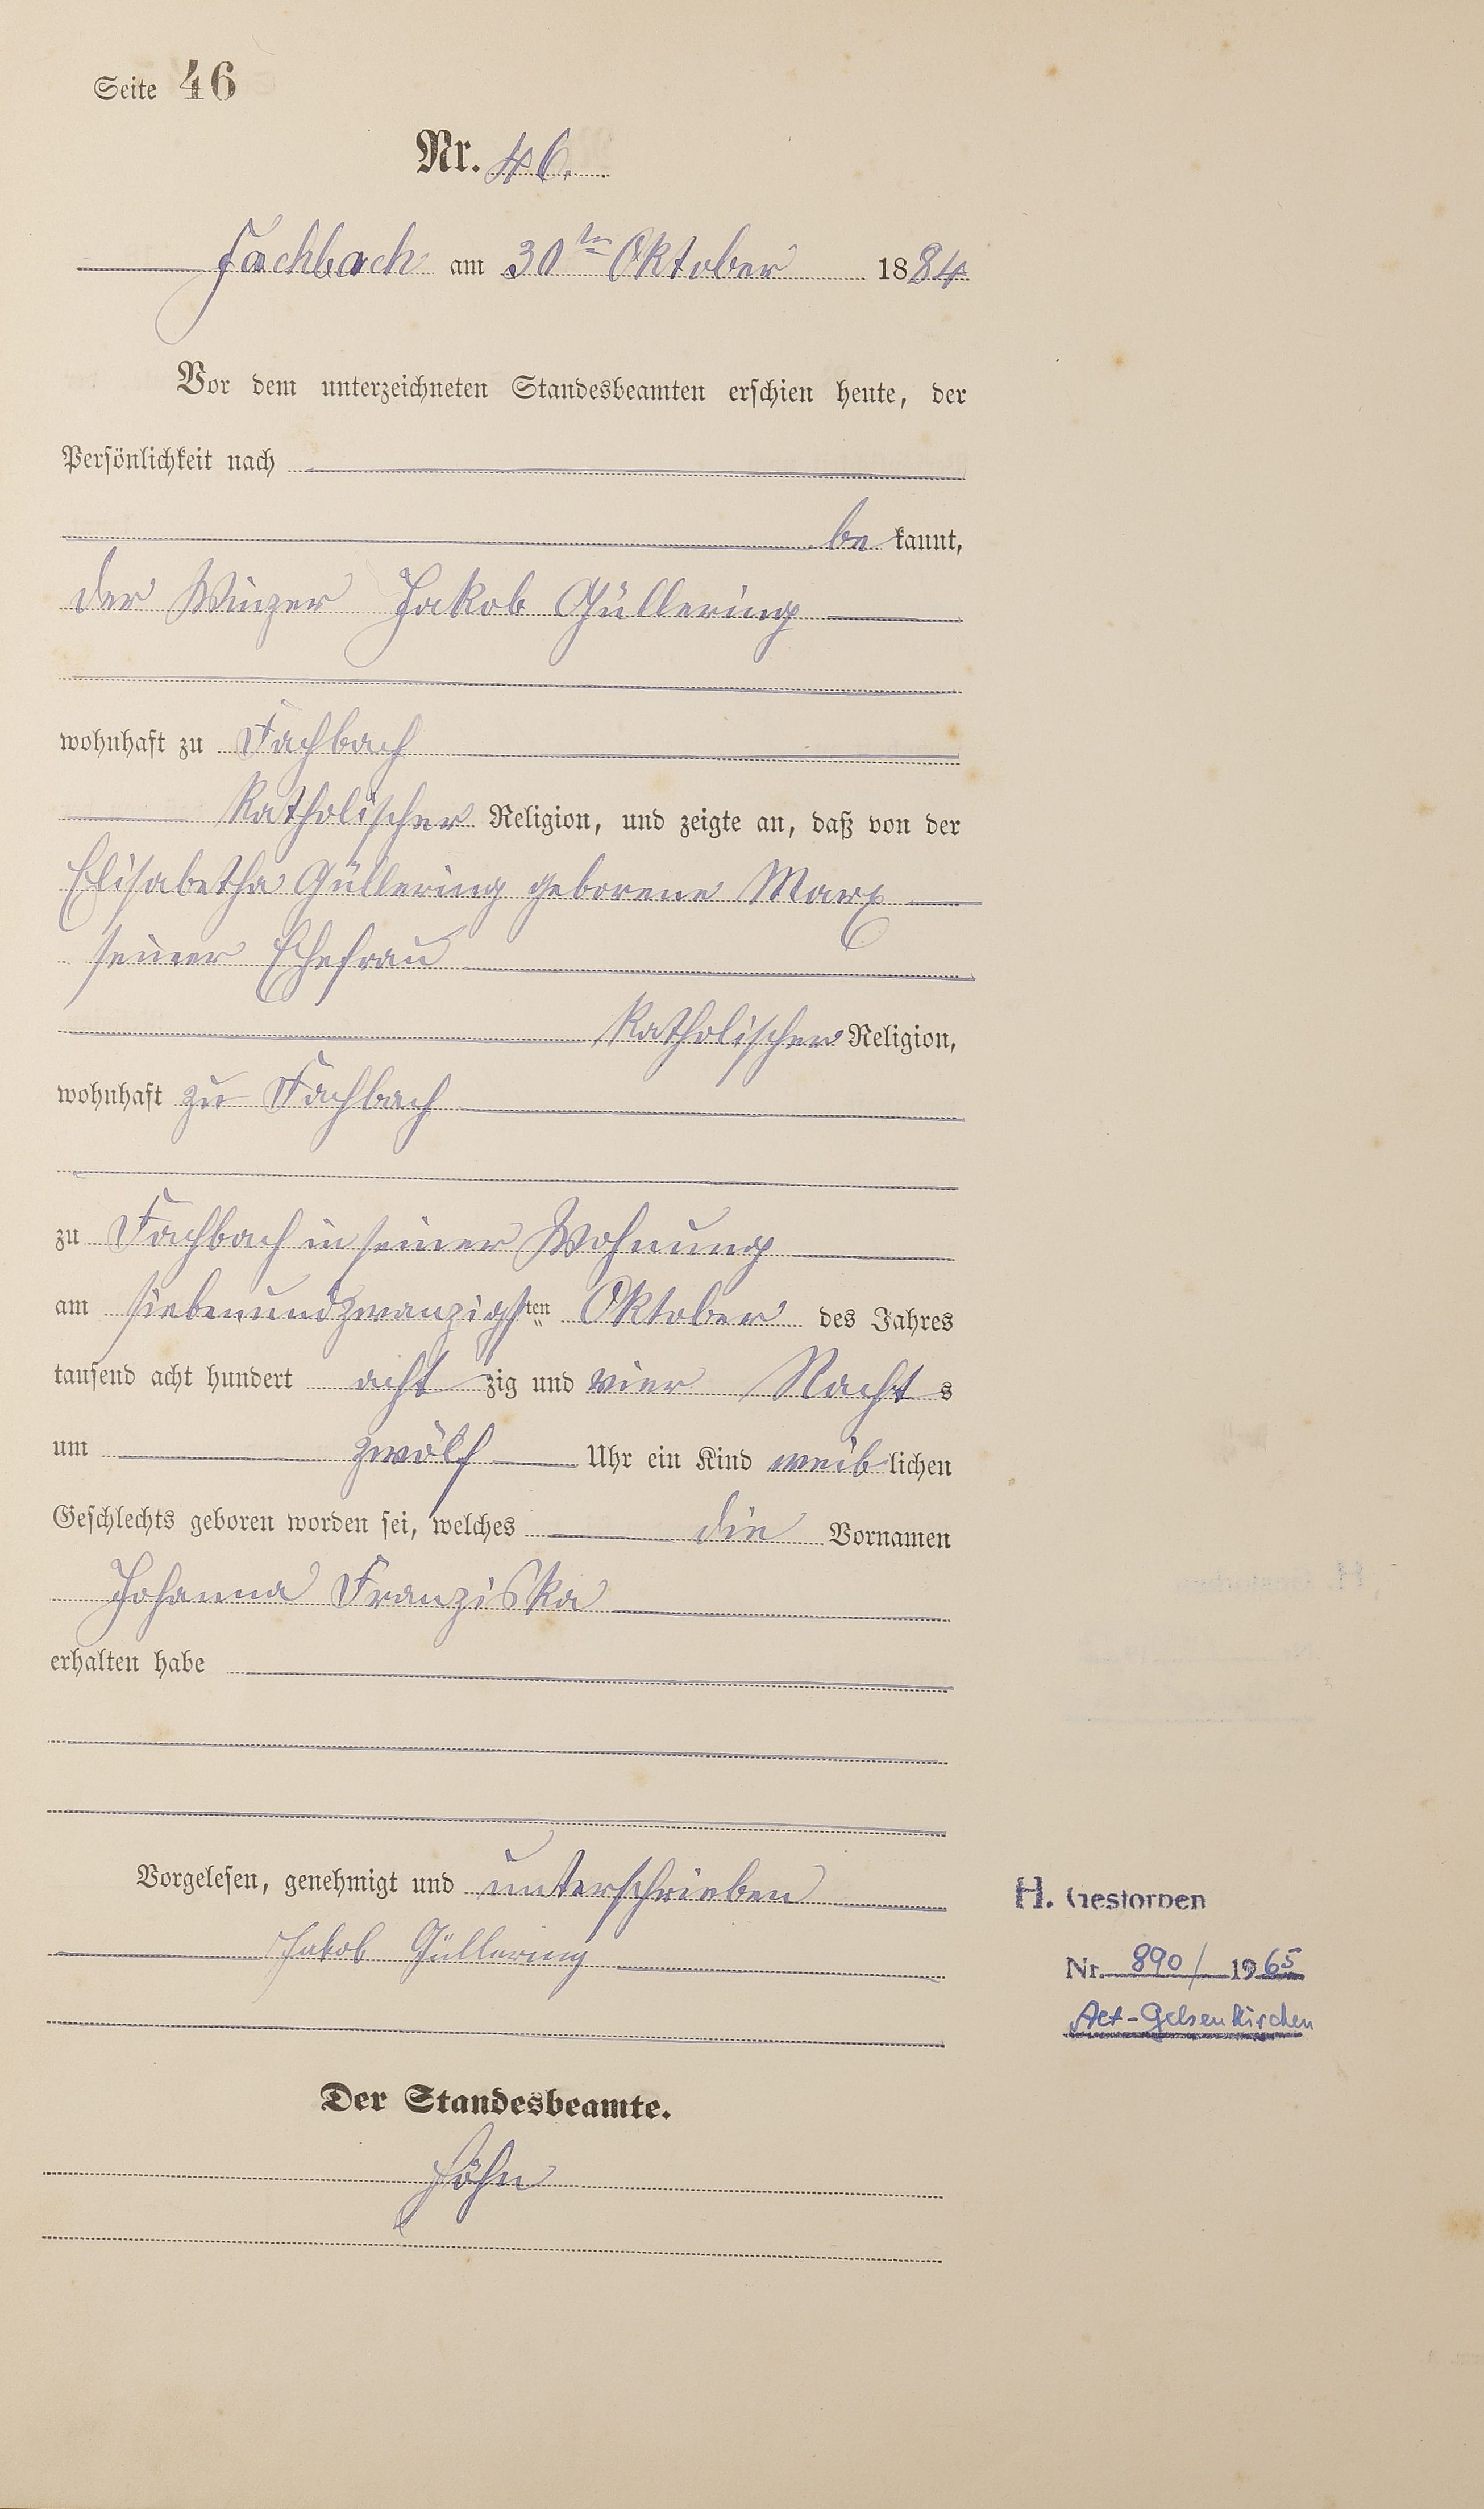 Seite 46
Nr. 46.
Fachbach am 30ten Oktober 1884
Vor dem unterzeichneten Standesbeamten erschien heute, der
Persönlichkeit nach
be kannt,
der Winzer Jakob Güllering
wohnhaft zu Fachbach
Katholischer Religion, und zeigte an, daß von der
Elisabetha Güllering geborene Marx
seiner Ehefrau
Katholischer Religion,
wohnhaft zu Fachbach
zu Fachbach in seiner Wohnung
am siebenundzwanzigsten Oktober des Jahres
tausend acht hundert acht zig und vier Nacht s
um zwölf Uhr ein Kind weiblichen
Geschlechts geboren worden sei, welches die Vornamen
Johanna Franziska
erhalten habe
Vorgelesen, genehmigt und unterschrieben
Jakob Güllering
H. Gestorben
Nr. 890/ 1965
Alt-Gelsenkirchen
Der Standesbeamte.
Höhn